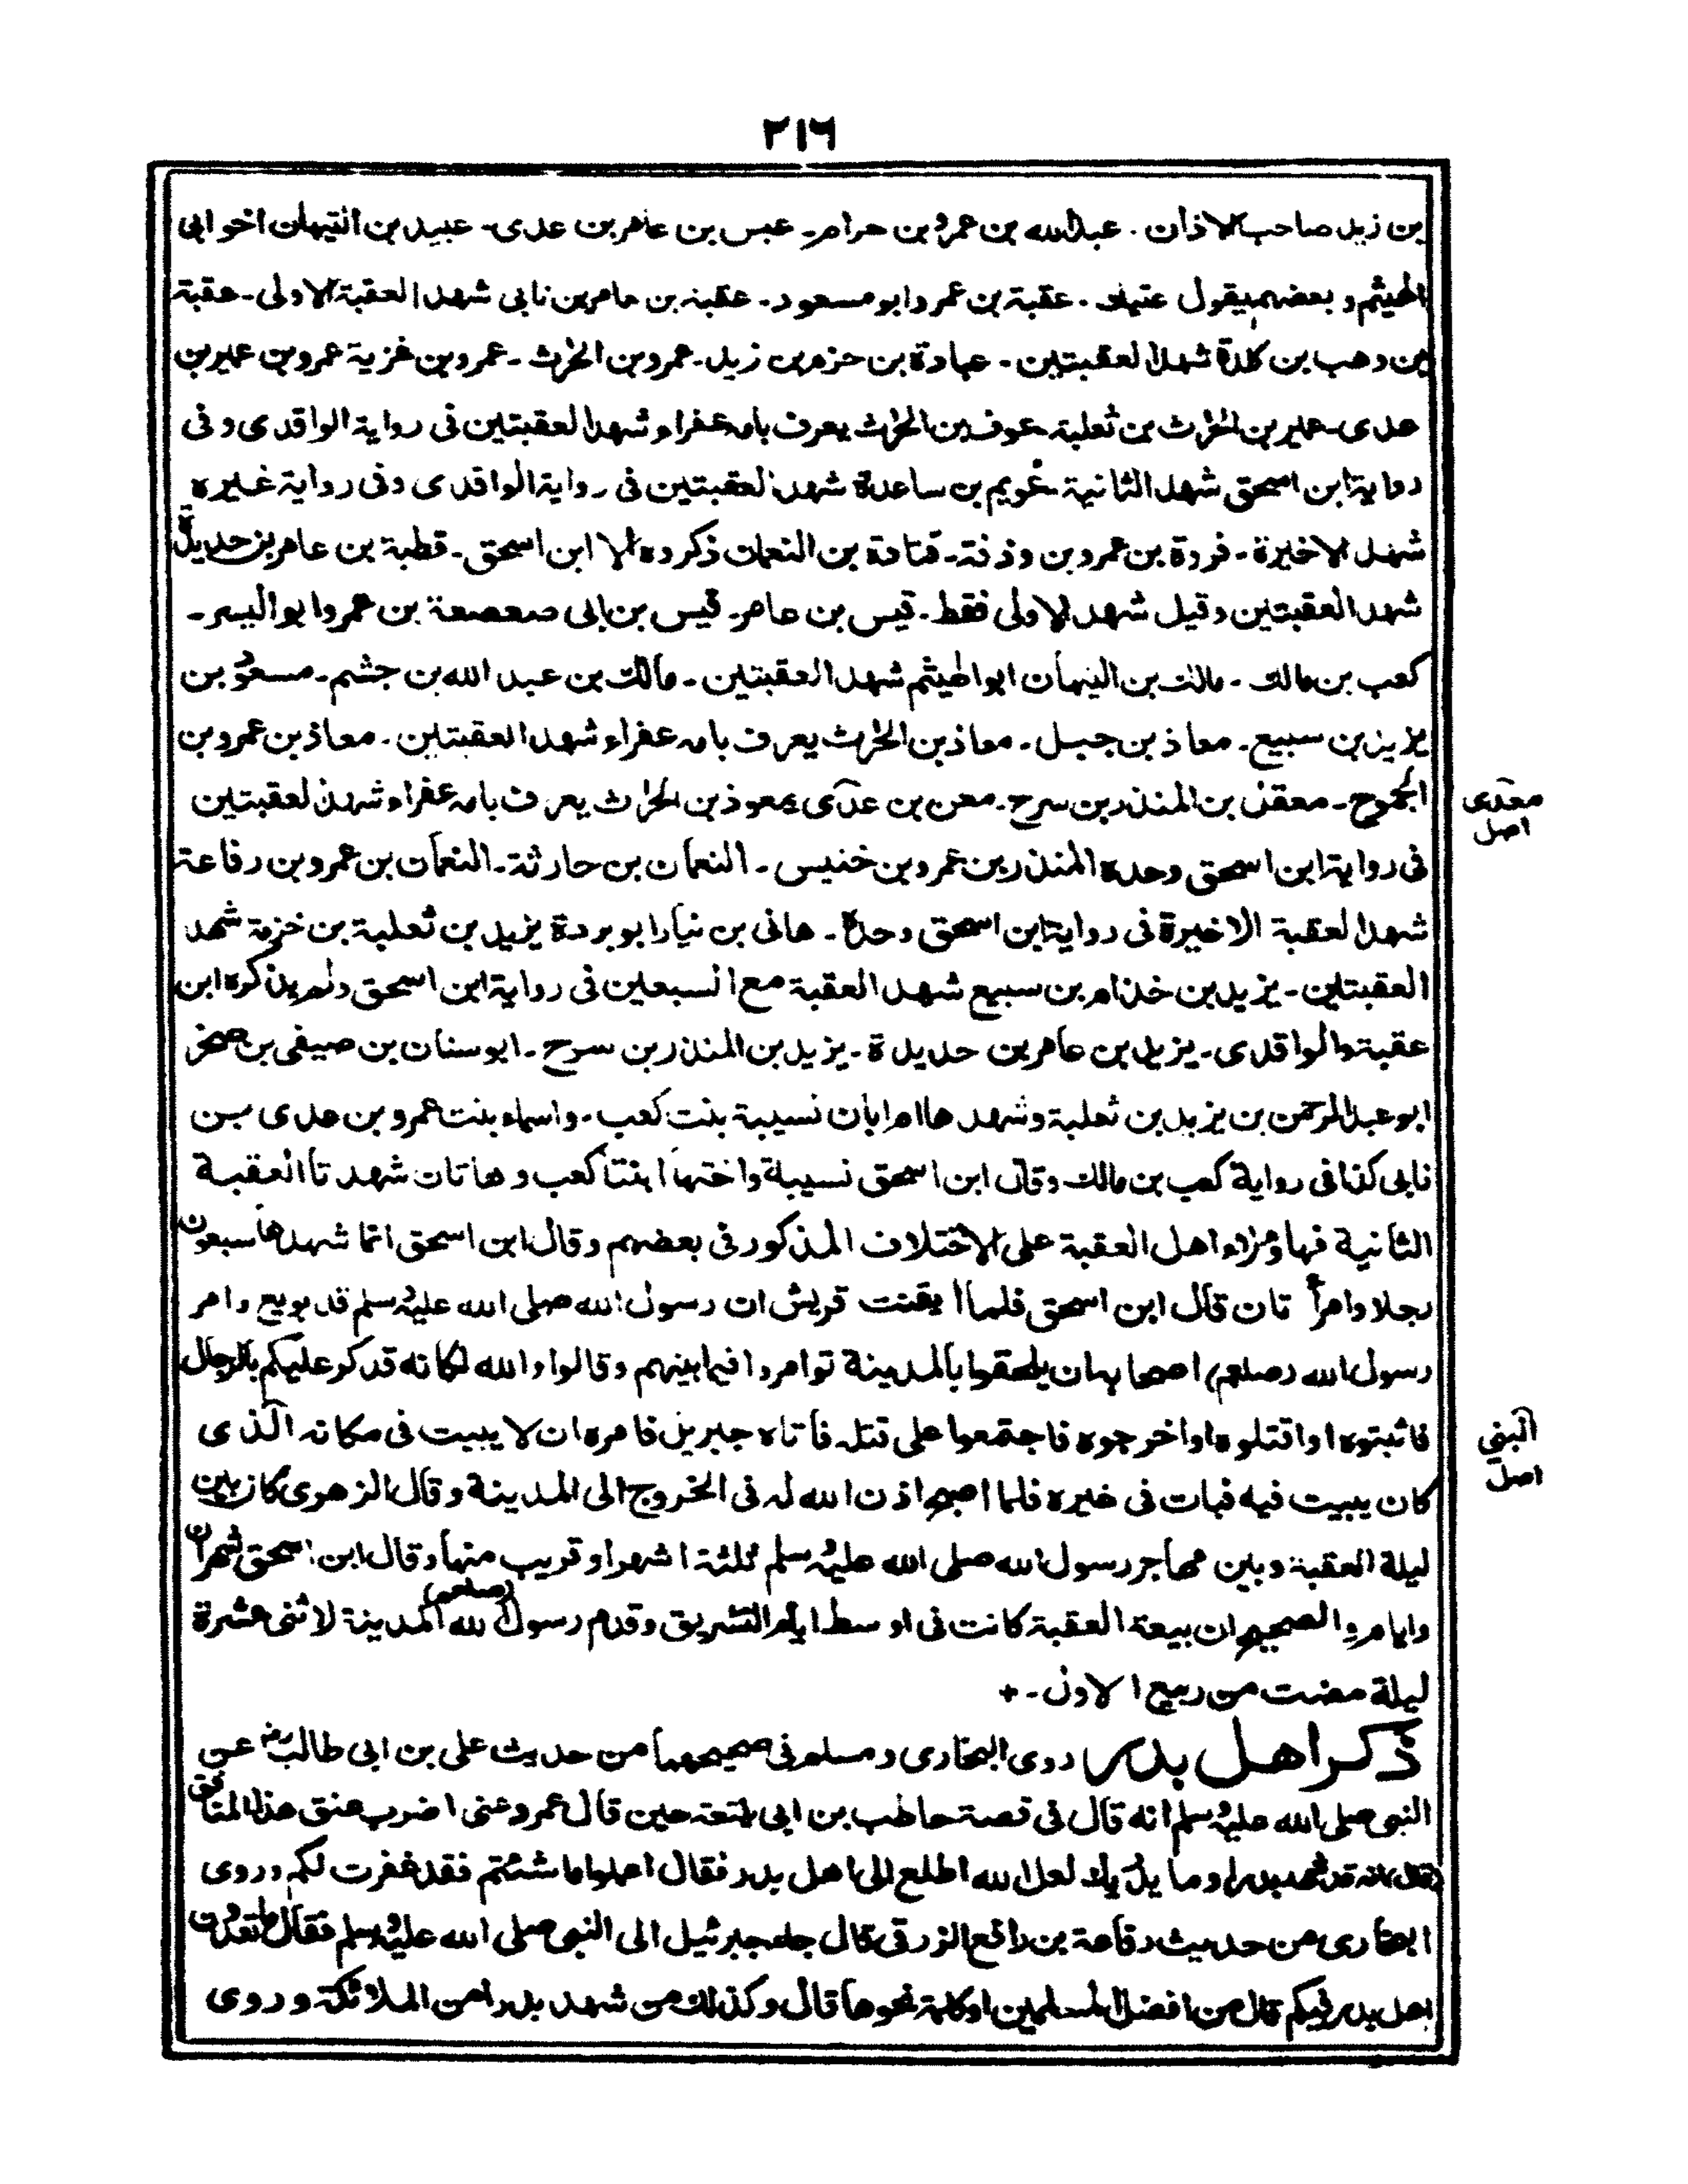 ٢١٦
بن زيد صاحب الاذان ـ عبد الله بن عمرو بن حرام ـ عبس بن عامر بن عدى ـ عبيد بن التيهان اخو ابى
الهيثم و بعضهم يقول عتيك ـ عقبة بن عمرو ابو مسعود ـ عقبة بن عامر بن نابى شهد العقبة الاولى ـ عقبة
بن وهب بن كلدة شهد العقبتين ـ عبادة بن حزم بن زيد ـ عمرو بن الحرث ـ عمرو بن غزية عمرو بن عمير بن
عدى ـ عمير بن الحرث بن ثعلبة ـ عوف بن الحرث يعرف بامه عفراء شهد العقبتين فى رواية الواقدى و فى
رواية ابن اسحق شهد الثانية ـ عويم بن ساعدة شهد العقبتين فى رواية الواقدى وفى رواية غيره
شهد الاخيرة ـ فروة بن عمرو بن وذفة ـ قتادة بن النعمان ذكروه الا ابن اسحق ـ قطبة بن عامر بن حديدة
شهد العقبتين وقيل شهد الاولى فقط ـ قيس بن عامر ـ قيس بن ابى صعصعة بن عمرو ابو اليسر ـ
كعب بن مالك ـ مالك بن التيهان ابو الهيثم شهد العقبتين ـ مالك بن عبد الله بن جشم ـ مسعود بن
يزيد بن سبيع ـ معاذ بن جبل ـ معاذ بن الحرث يعرف بامه عفراء شهد العقبتين ـ معاذ بن عمرو بن
الجموح ـ معقل بن المنذر بن سرح ـ معن بن عدى معوذ بن الحراث يعرف بامه عفراء شهد العقبتين
معدى
اصل
فى رواية ابن اسحق وحده المنذر بن عمرو بن خنيس ـ النعمان بن حارثة ـ النعمان بن عمرو بن رفاعة
شهد العقبة الاخيرة فى رواية ابن اسحق وحده ـ هانى بن نيار ابو بردة يزيد بن ثعلبة بن خزمة شهد
العقبتين ـ يزيد بن خذام بن سبيع شهد العقبة مع السبعين فى رواية ابن اسحق ولم يذكره ابن
عقبة والواقدى ـ يزيد بن عامر بن حديدة ـ يزيد بن المنذر بن سرح ـ ابو سنان بن صيفى بن صخر
ابو عبد الرحمن بن يزيد بن ثعلبة وشهدها امرأتان نسيبة بنت كعب ـ واسماء بنت عمرو بن عدى بن
نابى كذا فى رواية كعب بن مالك وقال ابن اسحق نسيبة واختها ابنتا كعب و هاتان شهدتا العقبة
الثانية فهاؤلاء اهل العقبة على الاختلاف المذكور فى بعضهم وقال ابن اسحق انما شهدها سبعون
رجلا وامرأتان قال ابن اسحق فلما ايقنت قريش ان رسول الله صلى الله عليه وسلم قد بويع وامر
رسول الله (صلعم) اصحابه ان يلحقوا بالمدينة توامروا فيما بينهم وقالوا والله لكانه قد كر عليكم بالرجال
فاثبتوه او اقتلوه او اخرجوه فاجتمعوا على قتله فأتاه جبريل فامره ان لا يبيت فى مكانه الذى
البنى
اصل
كان يبيت فيه فبات فى غيره فلما اصبح اذن الله له فى الخروج الى المدينة وقال الزهرى كان بين
ليلة العقبة وبين مهاجر رسول الله صلى الله عليه وسلم ثلثة اشهر او قريب منها وقال ابن اسحق شهران
وايام والصحيح ان بيعة العقبة كانت فى اوسط ايام التشريق وقدم رسول الله (صلعم) المدينة لاثنى عشرة
ليلة مضت من ربيع الاول ـ +
ذكر اهل بدر روى البخارى ومسلم فى صحيحهما من حديث على بن ابى طالب رض عن
النبى صلى الله عليه وسلم انه قال فى قصة حاطب بن ابى بلتعة حين قال عمر دعنى اضرب عنق هذا المنافق
فقال انه قد شهد بدرا وما يدريك لعل الله اطلع الى اهل بدر فقال اعملوا ما شئتم فقد غفرت لكم وروى
البخارى من حديث رفاعة بن رافع الزرقى قال جاء جبرئيل الى النبى صلى الله عليه وسلم فقال ما تعدون
اهل بدر فيكم قال من افضل المسلمين او كلمة نحوها قال وكذلك من شهد بدرا من الملائكة وروى